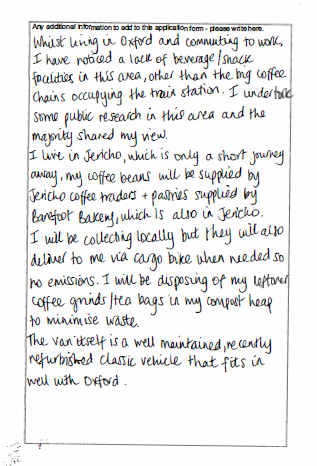 Any additional information to add to this application form - please write here.
Whilst living in Oxford and commuting to work,
I have noticed a lack of beverage/snack
facilities in this area, other than the big coffee
chains occupying the train station. I undertook
some public research in this area and the
majority shared my view.
I live in Jericho, which is only a short journey
away, my coffee beans will be supplied by
Jericho coffee traders + pastries supplied by
Barefoot Bakery, which is also in Jericho.
I will be collecting locally but they will also
deliver to me via cargo bike when needed so
no emissions. I will be disposing of my leftover
coffee grinds/tea bags in my compost heap
to minimise waste.
The van itself is a well maintained, recently
refurbished classic vehicle that fits in
well with Oxford.